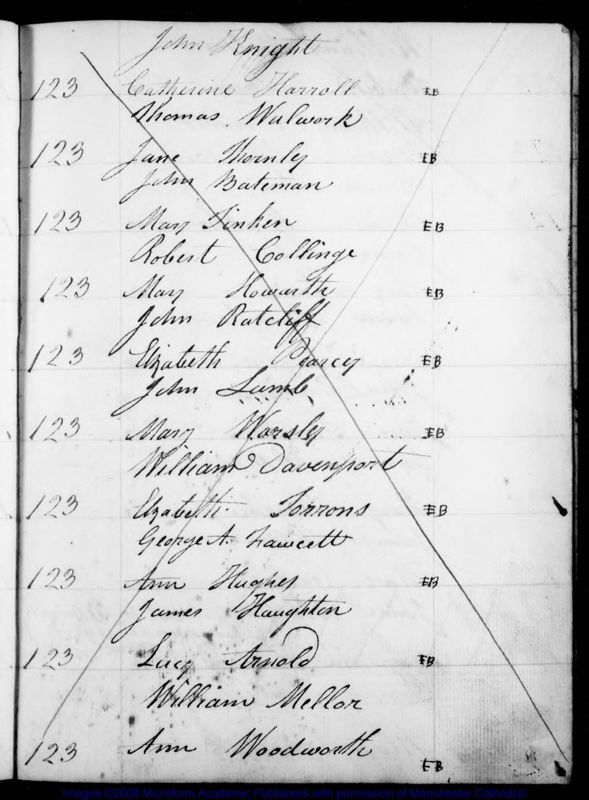 John Knight
123 Catherine Harroll EB
Thomas Walwork
123 Jane Thornley EB
John Bateman
123 Mary Tinken EB
Robert Collinge
123 Mary Howarth EB
John Ratcliff
123 Elizabeth Pearcey EB
John Lamb
123 Mary Worsley EB
William Davenport
123 Elizabeth Torrons EB
George A. Fawcett
123 Ann Hughes EB
James Haughton
123 Lucy Arnold EB
William Mellor
123 Ann Woodworth EB
Images ©2008 Microform Academic Publishers with permission of Manchester Cathedral